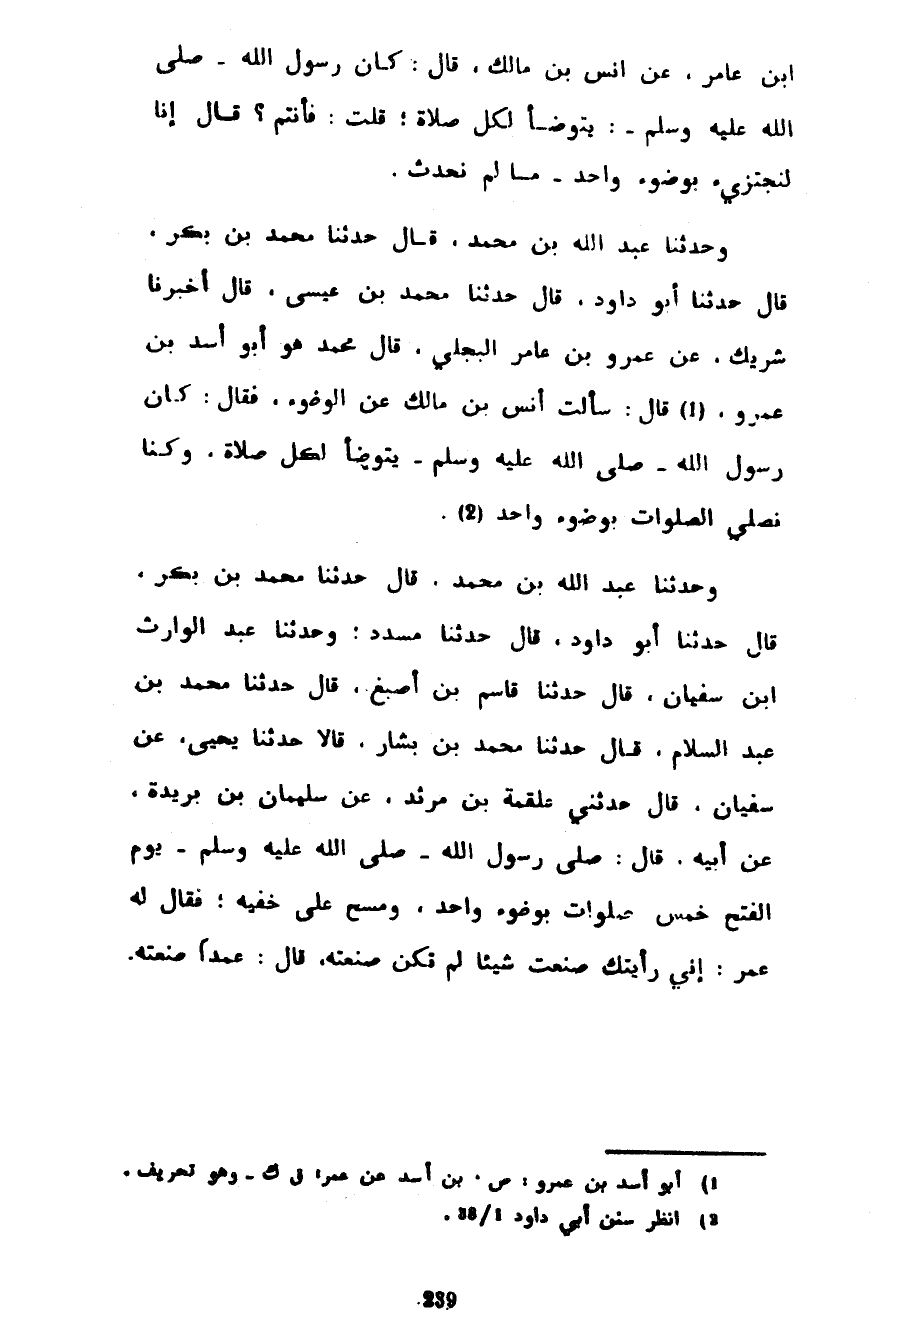 ابن عامر ، عن انس بن مالك ، قال : كان رسول الله ـ صلى
الله عليه وسلم ـ : يتوضأ لكل صلاة ؛ قلت : فأنتم ؟ قال إنا
لنجتزيء بوضوء واحد ـ ما لم نحدث .
وحدثنا عبد الله بن محمد ، قال حدثنا محمد بن بكر ،
قال حدثنا أبو داود ، قال حدثنا محمد بن عيسى ، قال أخبرنا
شريك ، عن عمرو بن عامر البجلي ، قال محمد هو أبو أسد بن
عمرو ، (1) قال : سألت أنس بن مالك عن الوضوء ، فقال : كان
رسول الله ـ صلى الله عليه وسلم ـ يتوضأ لكل صلاة ، وكنا
نصلي الصلوات بوضوء واحد (2) .
وحدثنا عبد الله بن محمد ، قال حدثنا محمد بن بكر ،
قال حدثنا أبو داود ، قال حدثنا مسدد ؛ وحدثنا عبد الوارث
ابن سفيان ، قال حدثنا قاسم بن أصبغ ، قال حدثنا محمد بن
عبد السلام ، قال حدثنا محمد بن بشار ، قالا حدثنا يحيى، عن
سفيان ، قال حدثني علقمة بن مرثد ، عن سليمان بن بريدة ،
عن أبيه ، قال : صلى رسول الله ـ صلى الله عليه وسلم ـ يوم
الفتح خمس صلوات بوضوء واحد ، ومسح على خفيه ؛ فقال له
عمر : إني رأيتك صنعت شيئا لم تكن صنعته، قال : عمدا صنعته.
1) أبو أسد بن عمرو : ص ، بن أسد عن عمر: ق ك ـ وهو تحريف .
2) انظر سنن أبي داود 1/38 .
239